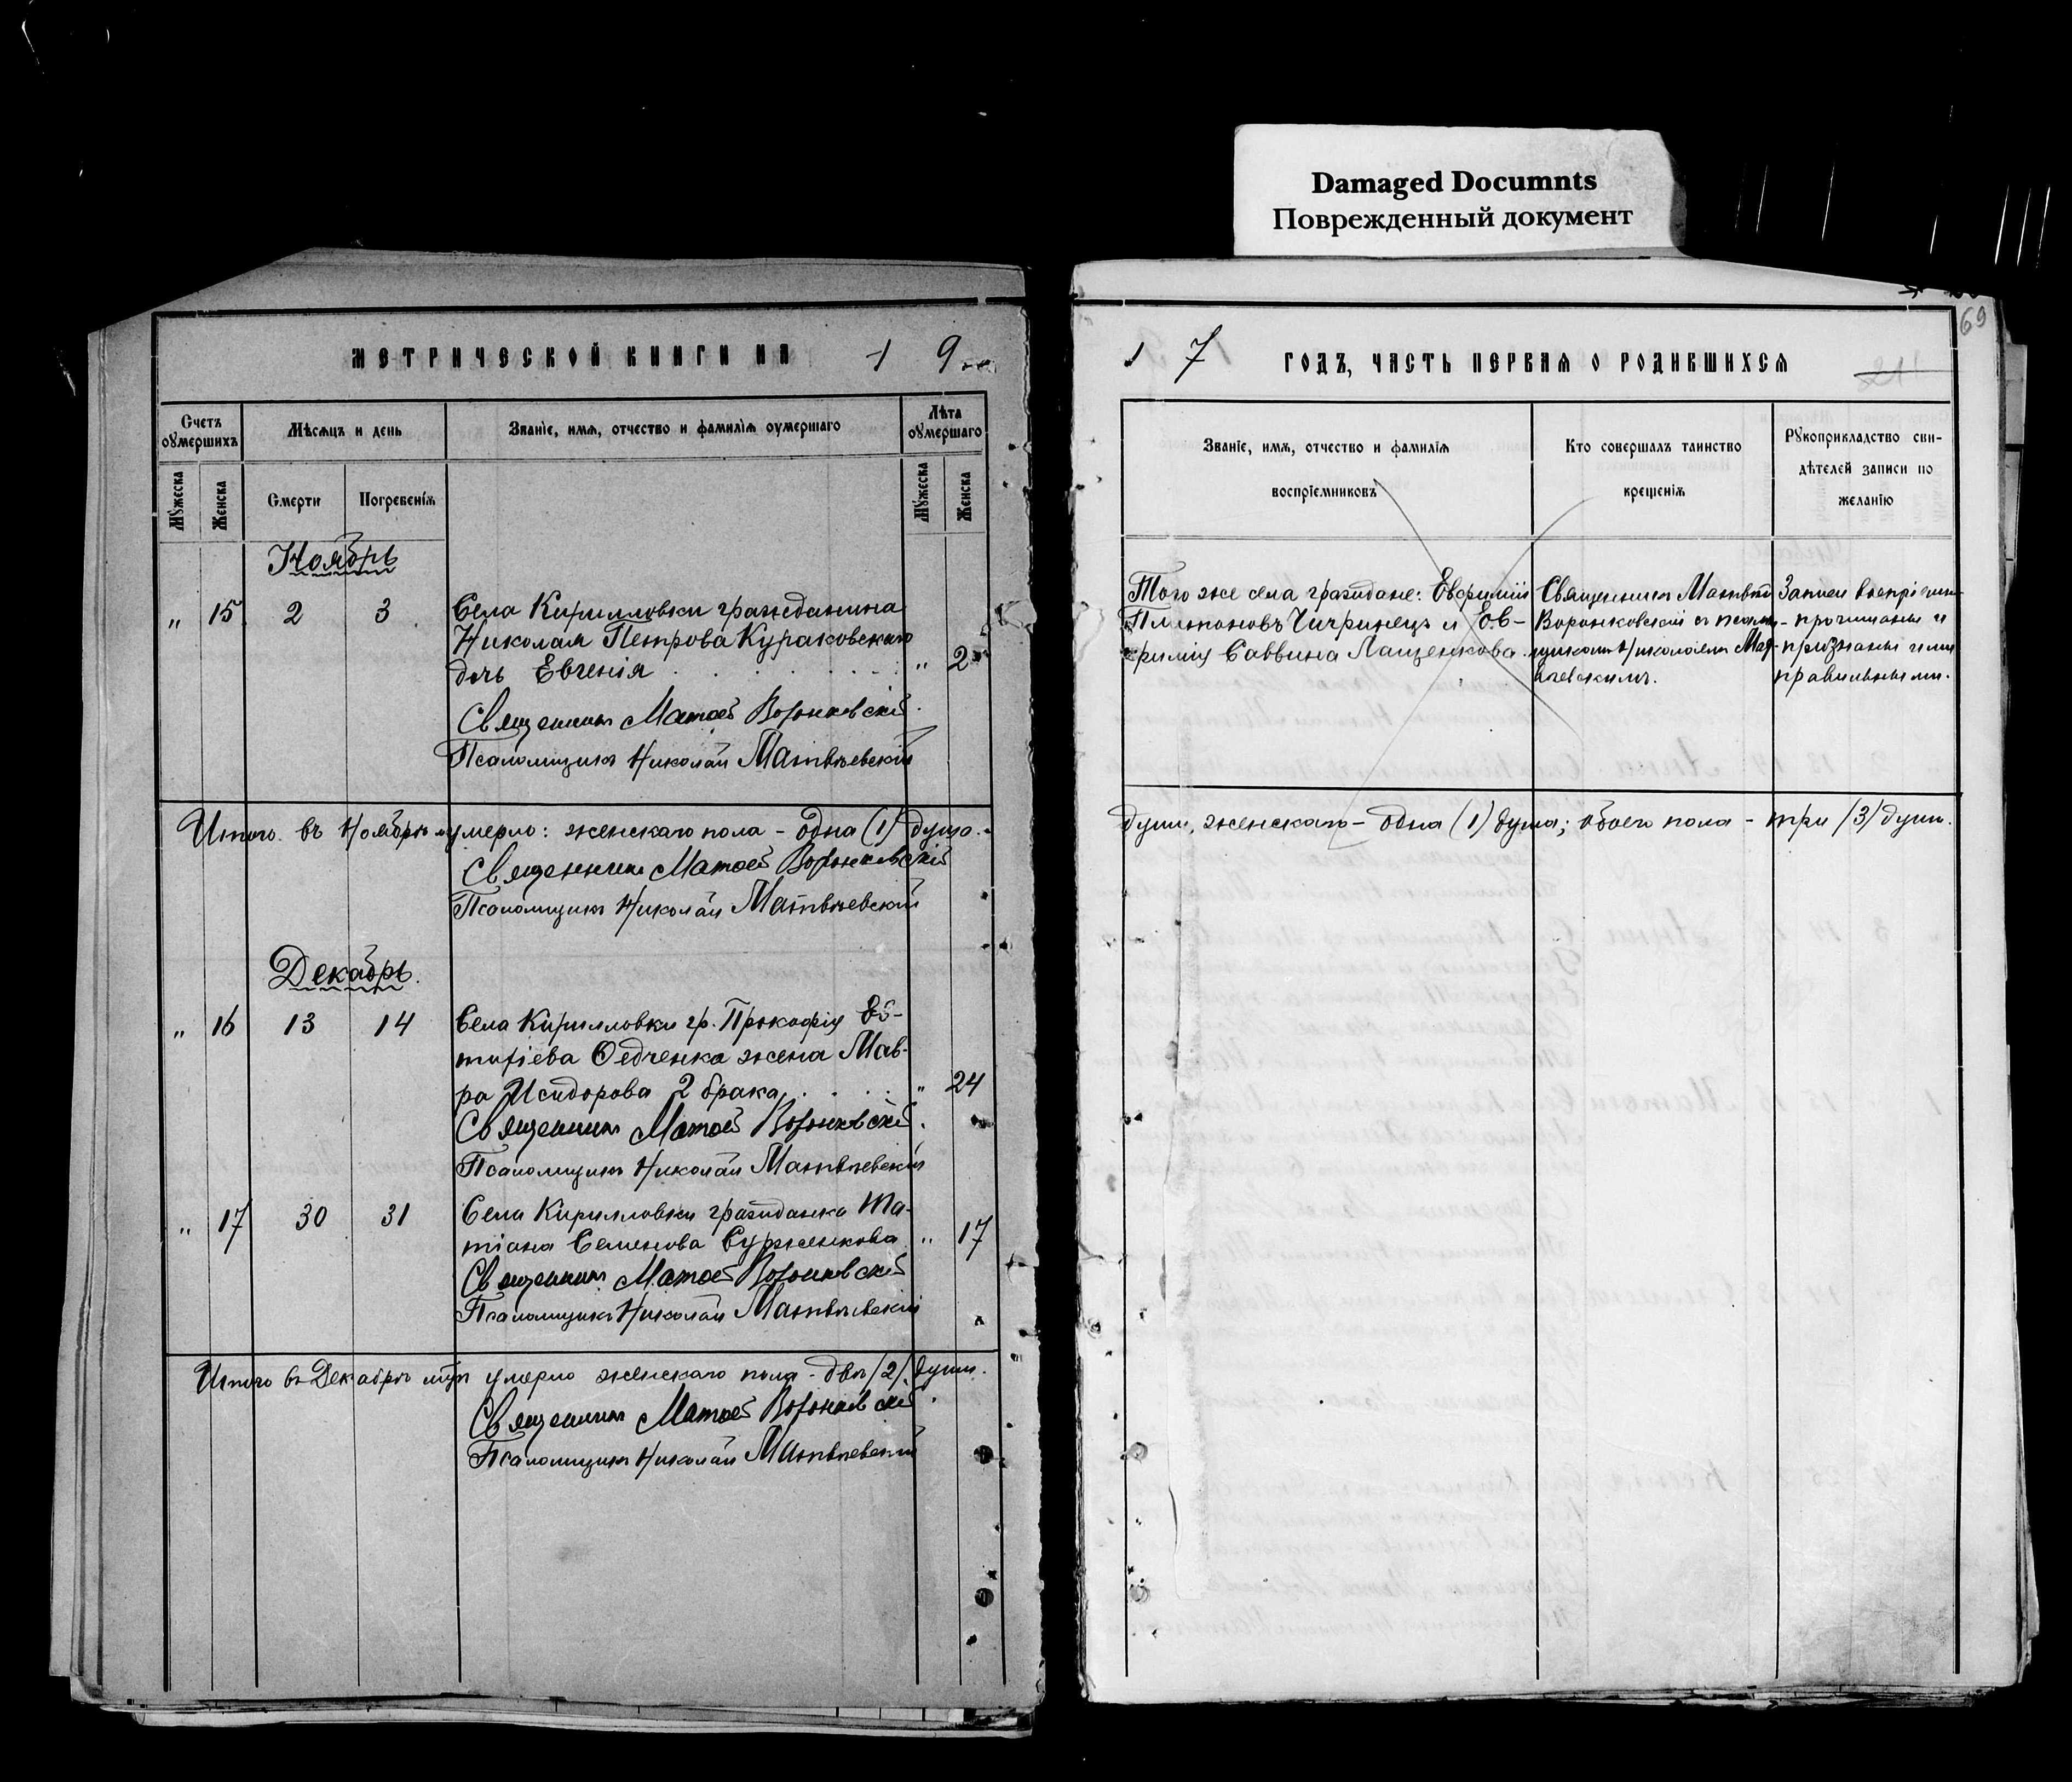 Damaged Documnts
Поврежденный документ
МЕТРИЧЕСКОЙ КНИГИ НА 1 9
Счетъ оумершихъ
Мѣсяцъ и день
Званіе, имя, отчество и фамилія оумершаго
Лѣта оумершаго
Мужеска
Женска
Смерти
Погребенія
Мужеска
Женска
Ноябрь
„ 15 2 3 Села Кирилловки гражданина
Николая Петрова Кураковскаго
дочь Евгенія „ 2
Священникъ Матѳей Воронковскій
Псаломщикъ Николай Матвѣевскій
Итого въ Ноябрѣ умерло: женскаго пола – одна (1) душа.
Священникъ Матѳей Воронковскій
Псаломщикъ Николай Матвѣевскій
Декабрь.
„ 16 13 14 Села Кирилловки гр. Прокофія
Ѳедченка жена Мав-
ра Исидорова 2 брака „ 24
Священникъ Матѳей Воронковскій
Псаломщикъ Николай Матвѣевскій
„ 17 30 31 Села Кирилловки гражданка Та-
тіана Семенова Сурженкова „ 17
Священникъ Матѳей Воронковскій
Псаломщикъ Николай Матвѣевскій
Итого въ Декабрѣ умерло женскаго пола – двѣ /2/ души.
Священникъ Матѳей Воронковскій
Псаломщикъ Николай Матвѣевскій
69
1 7 ГОДЪ, ЧАСТЬ ПЕРВАЯ О РОДИВШИХСЯ
Званіе, имя, отчество и фамилія
воспріемниковъ
Кто совершалъ таинство
крещенія
Рукоприкладство сви-
дѣтелей записи по
желанію
Того же села граждане: Евфимій
Платоновъ Чигринецъ и Ев-
фимія Саввина Лащенкова.
Священникъ Матѳей
Воронковскій съ псалом-
щикомъ Николаемъ Мат-
вѣевскимъ.
Записи воспріемн-
прочитаны и
признаны ими
правильными.
души, женскаго – одна (1) душа; обоего пола – три /3/ души.